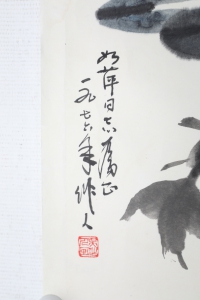 如萍同志属正
一九七六年作人